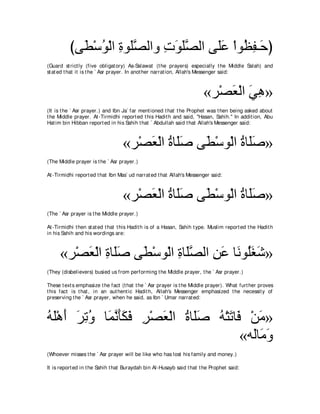 (حَـفِظُواْ عَلَى الصَّلَوَتِ والصَّلَوةِ الْوُسْطَى)
(Guard strictly (five obligatory) As-Salawat (the prayers) especially the Middle Salah) and
stated that it is the `Asr prayer. In another narration, Allah's Messenger said:
«هِيَ الْعَصْر»
(It is the `Asr prayer.) and Ibn Ja`far mentioned that the Prophet was then being asked about
the Middle prayer. At-Tirmidhi reported this Hadith and said, "Hasan, Sahih." In addition, Abu
Hatim bin Hibban reported in his Sahih that `Abdullah said that Allah's Messenger said:
«صَلَاةُ الْوسْطَى صَلَاةُ الْعَصْر»
(The Middle prayer is the `Asr prayer.)
At-Tirmidhi reported that Ibn Mas`ud narrated that Allah's Messenger said:
«صَلَاةُ الْوسْطَى صَلَاةُ الْعَصْر»
(The `Asr prayer is the Middle prayer.)
At-Tirmidhi then stated that this Hadith is of a Hasan, Sahih type. Muslim reported the Hadith
in his Sahih and his wordings are:
«شَغَلُونَا عَنِ الصَّلَاةِ الْوسْطَى صَلَاةِ الْعَصْر»
(They (disbelievers) busied us from performing the Middle prayer, the `Asr prayer.)
These texts emphasize the fact (that the `Asr prayer is the Middle prayer). What further proves
this fact is that, in an authentic Hadith, Allah's Messenger emphasized the necessity of
preserving the `Asr prayer, when he said, as Ibn `Umar narrated:
«مَنْ فَاتَتْهُ صَلَاةُ الْعَصْرِ فَكَأَنَّمَا وُتِرَ أَهْلَهُ
وَمَالَه»
(Whoever misses the `Asr prayer will be like who has lost his family and money.)
It is reported in the Sahih that Buraydah bin Al-Husayb said that the Prophet said: